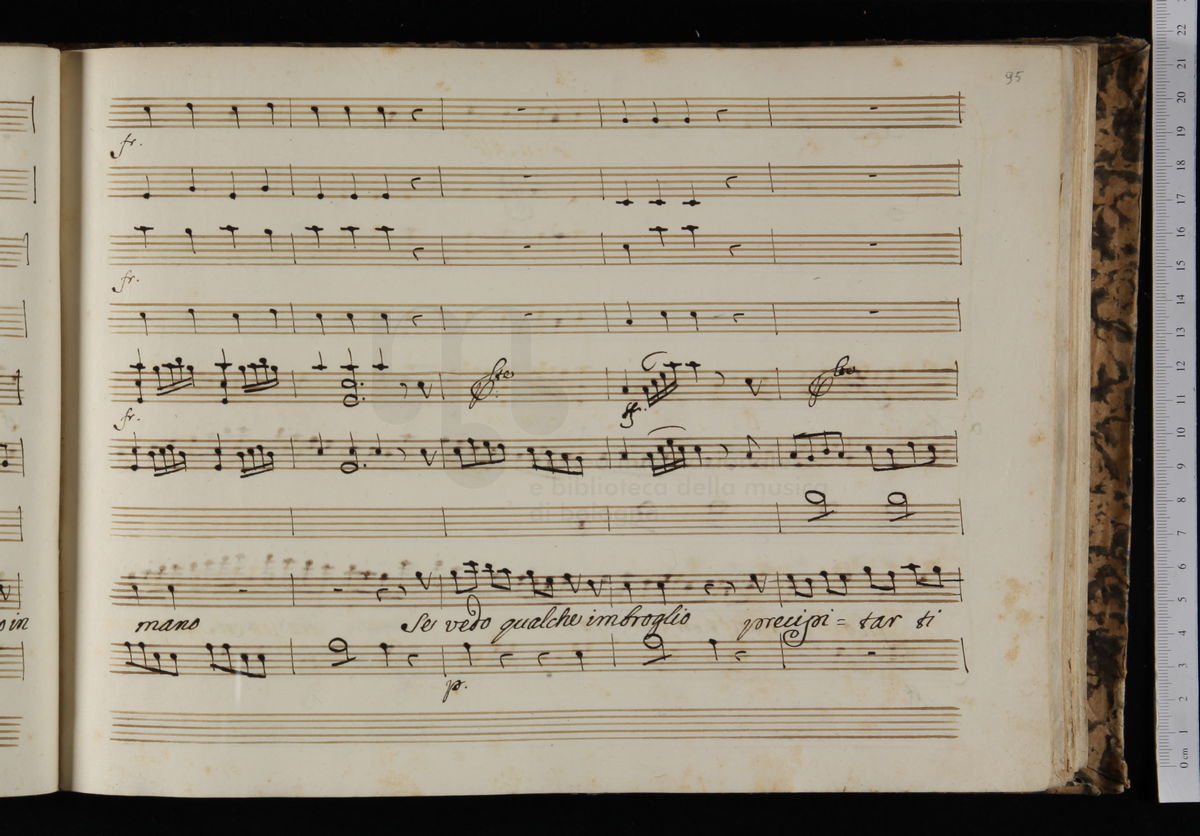 95
fr.
fr.
fr.
fr.
e biblioteca della musica
o in mano Se vedo qualche imbroglio precipi = tar ti
p.
0 cm 1 2 3 4 5 6 7 8 9 10 11 12 13 14 15 16 17 18 19 20 21 22